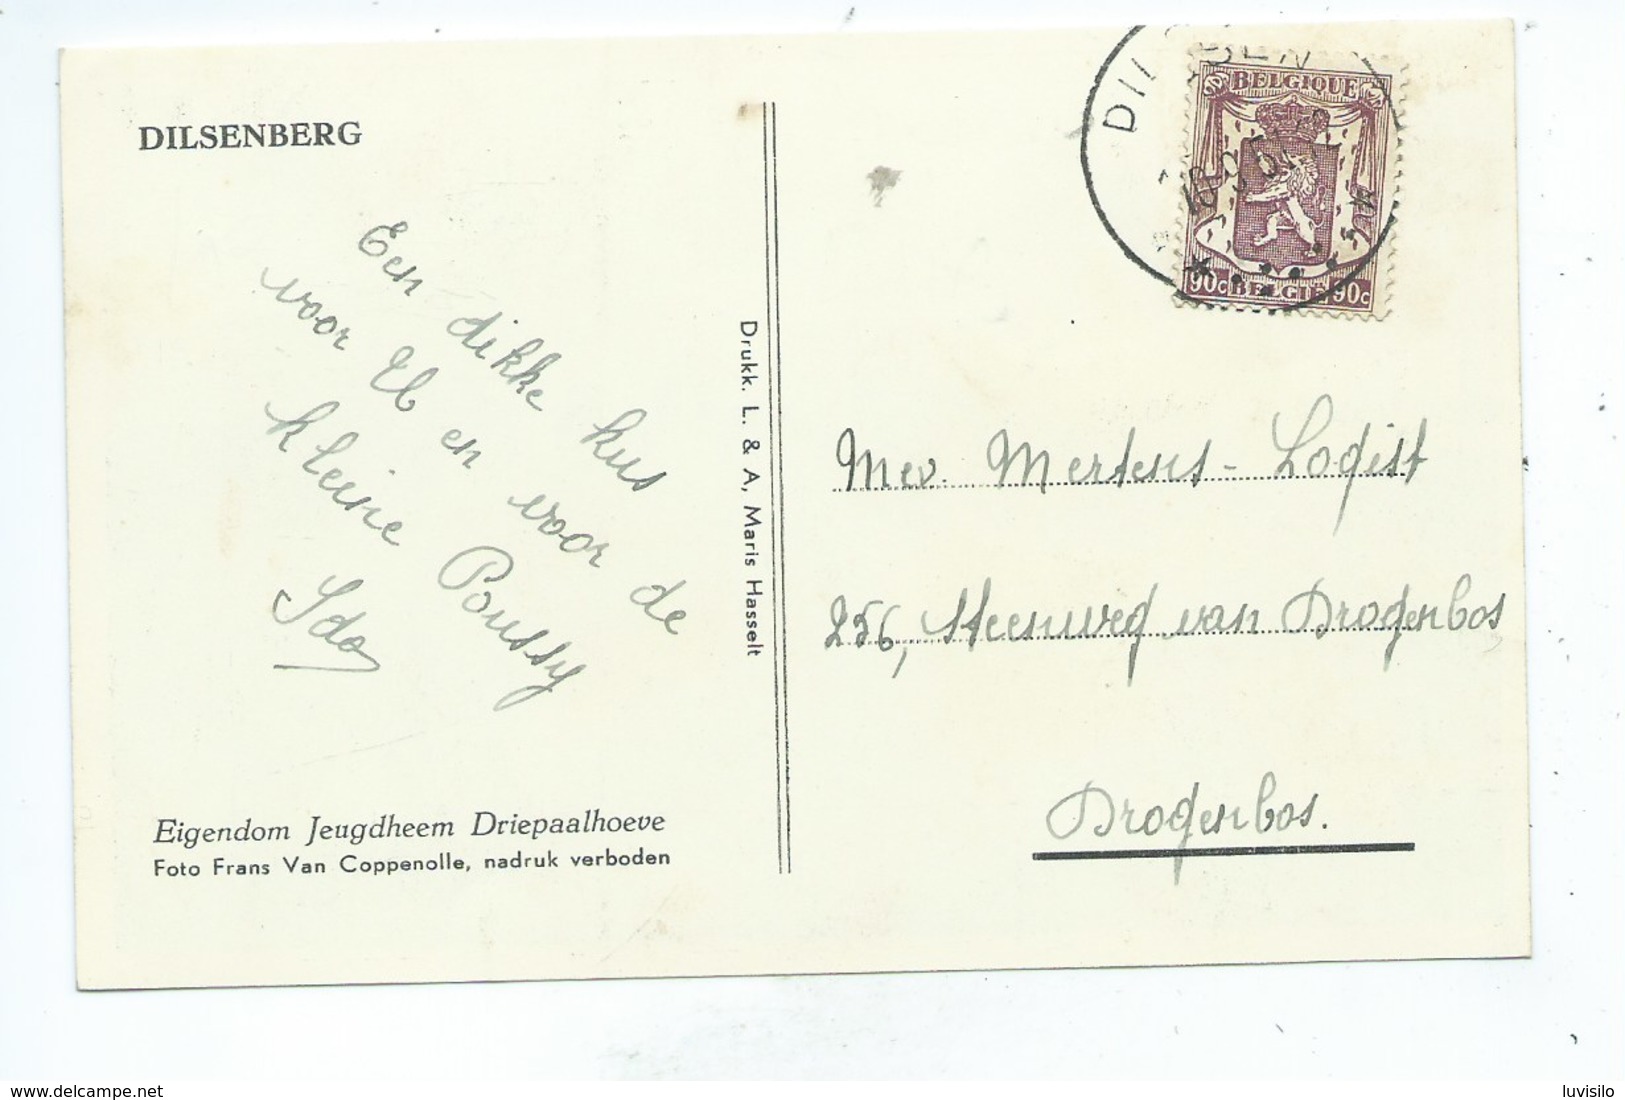 DILSENBERG
Een dikke kus
voor Eb en voor de
kleine Poussy
Ido
Eigendom Jeugdheem Driepaalhoeve
Foto Frans Van Coppenolle, nadruk verboden
Drukk. L. & A. Maris Hasselt
DILSEN
BELGIQUE
90c BELGIE 90c
Mev. Mertens - Logist
256, Steenweg van Drogenbos
Drogenbos.
delcampe.net
luvisilo